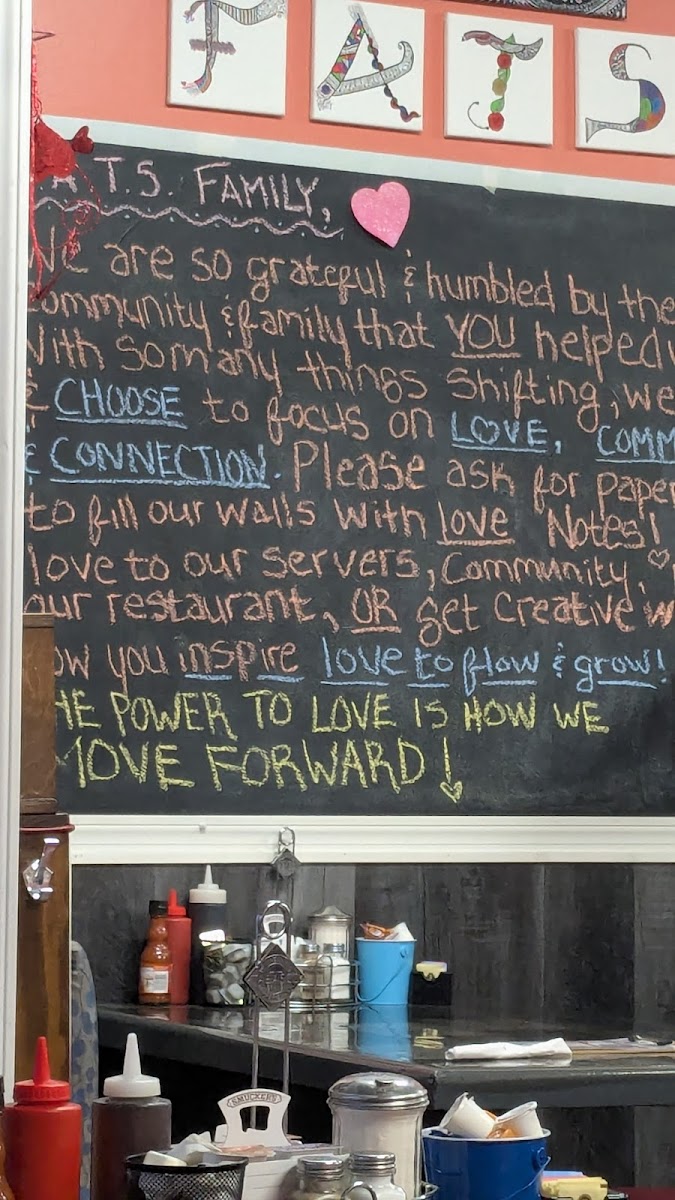 FATS
A T.S. FAMILY,
We are so grateful & humbled by the
community & family that YOU helped
With so many things shifting, we
& CHOOSE to focus on LOVE, COMM
& CONNECTION. Please ask for paper
to fill our walls with love Notes!
love to our servers, Community,
our restaurant, OR get creative w
ow you inspire love to flow & grow!
HE POWER TO LOVE IS HOW WE
MOVE FORWARD!
SMUCKER'S